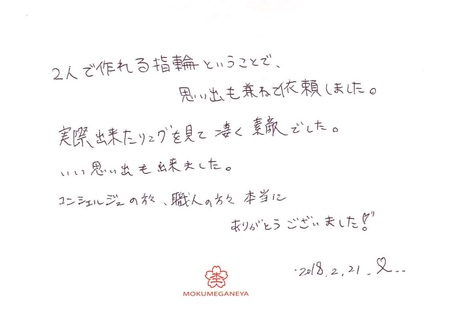 2人で作れる指輪ということで、
思い出も兼ねて依頼しました。
実際出来たリングを見て凄く素敵でした。
いい思い出も出来ました。
コンシェルジュの方々、職人の方々本当に
ありがとうございました!!
2018.2.21
MOKUMEGANEYA